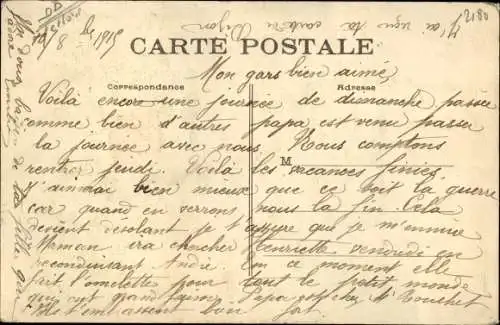 2180
8 1915
J'ai reçu ta carte de Dijon
CARTE POSTALE
Mon gars bien aimé,
Correspondance
Adresse
M
Voilà encore une journée de dimanche passée
comme bien d'autres papa est venu passer
la journée avec nous. Nous comptons
rentrer jeudi. Voilà les vacances finies
J'aimerai bien mieux que ce soit la guerre
car quand en verrons nous la fin. Cela
devient désolant je t'assure que je m'ennuie
Maman ira chercher Henriette vendredi en
reconduisant André. En ce moment elle
fait l'omelette pour tout le petit monde
qui ont grand faim. Papa est chez Mr Bouchet
Ils t'embrassent bon